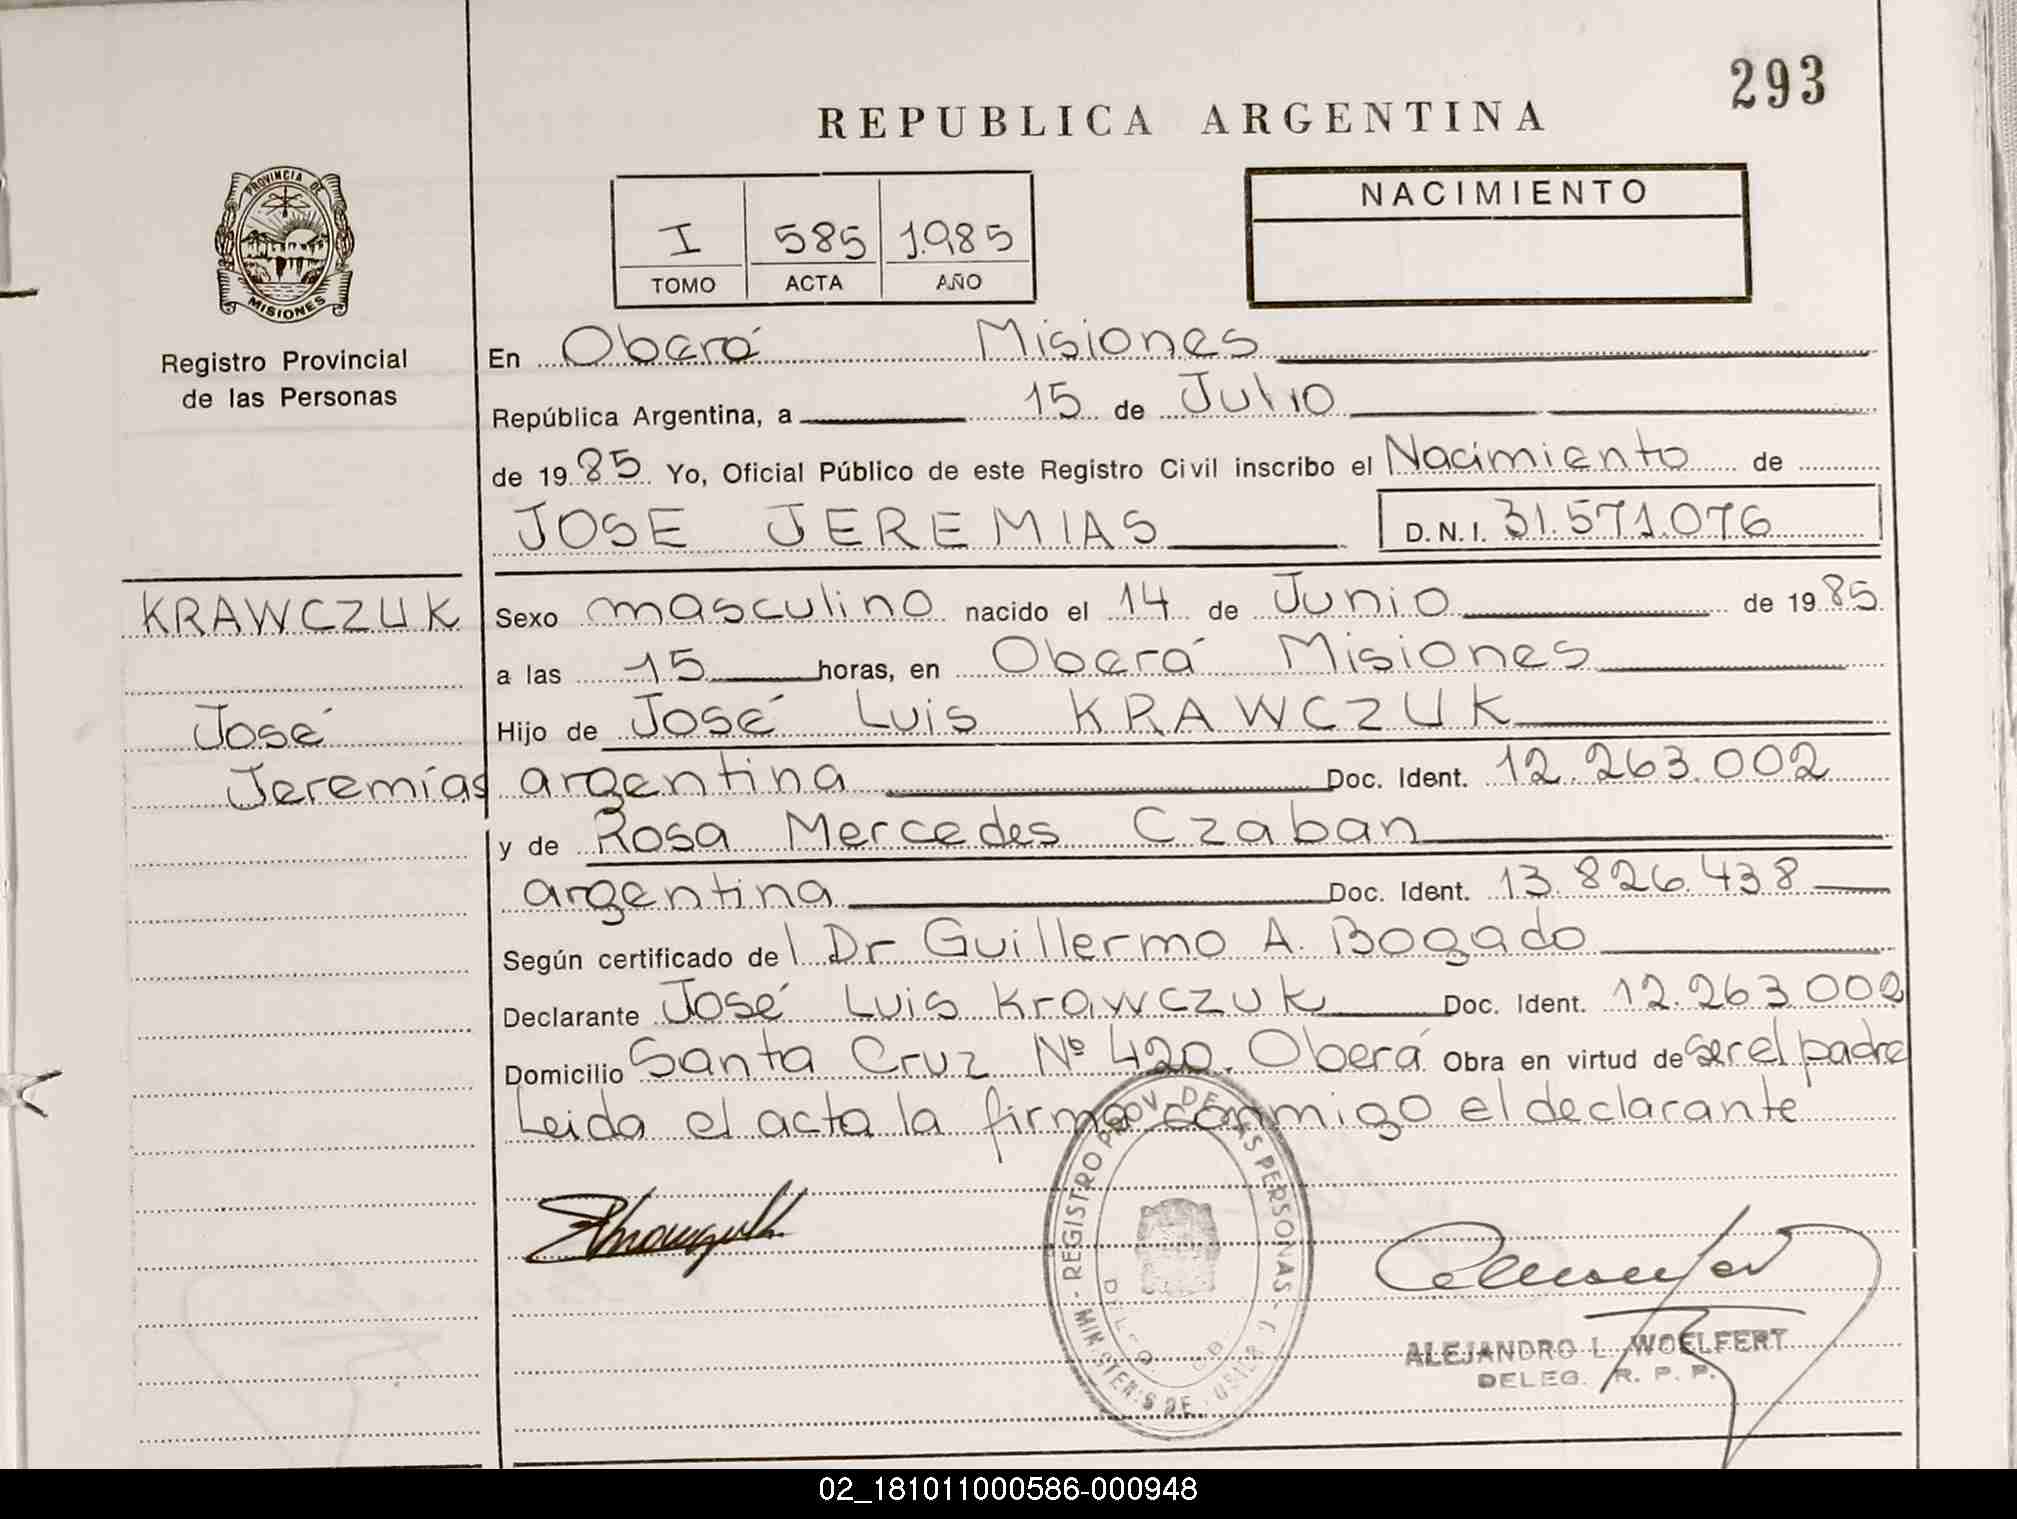 293
REPUBLICA ARGENTINA
PROVINCIA DE
MISIONES
Registro Provincial
de las Personas
I 585 1.985
TOMO ACTA AÑO
NACIMIENTO
En Oberá Misiones
República Argentina, a 15 de Julio
de 1985 Yo, Oficial Público de este Registro Civil inscribo el Nacimiento de
JOSE JEREMIAS D.N.I. 31.571.076
KRAWCZUK
José
Jeremías
Sexo masculino nacido el 14 de Junio de 1985
a las 15 horas, en Oberá Misiones
Hijo de José Luis KRAWCZUK
argentina Doc. Ident. 12.263.002
y de Rosa Mercedes Czaban
argentina Doc. Ident. 13.826.438
Según certificado del Dr Guillermo A. Bogado
Declarante José Luis Krawczuk Doc. Ident. 12.263.002
Domicilio Santa Cruz Nº 420. Oberá Obra en virtud de ser el padre
Leida el acta la firma conmigo el declarante
REGISTRO PROV. DE LAS PERSONAS
ALEJANDRO L. WOELFERT
DELEG. R. P. P.
02_181011000586-000948